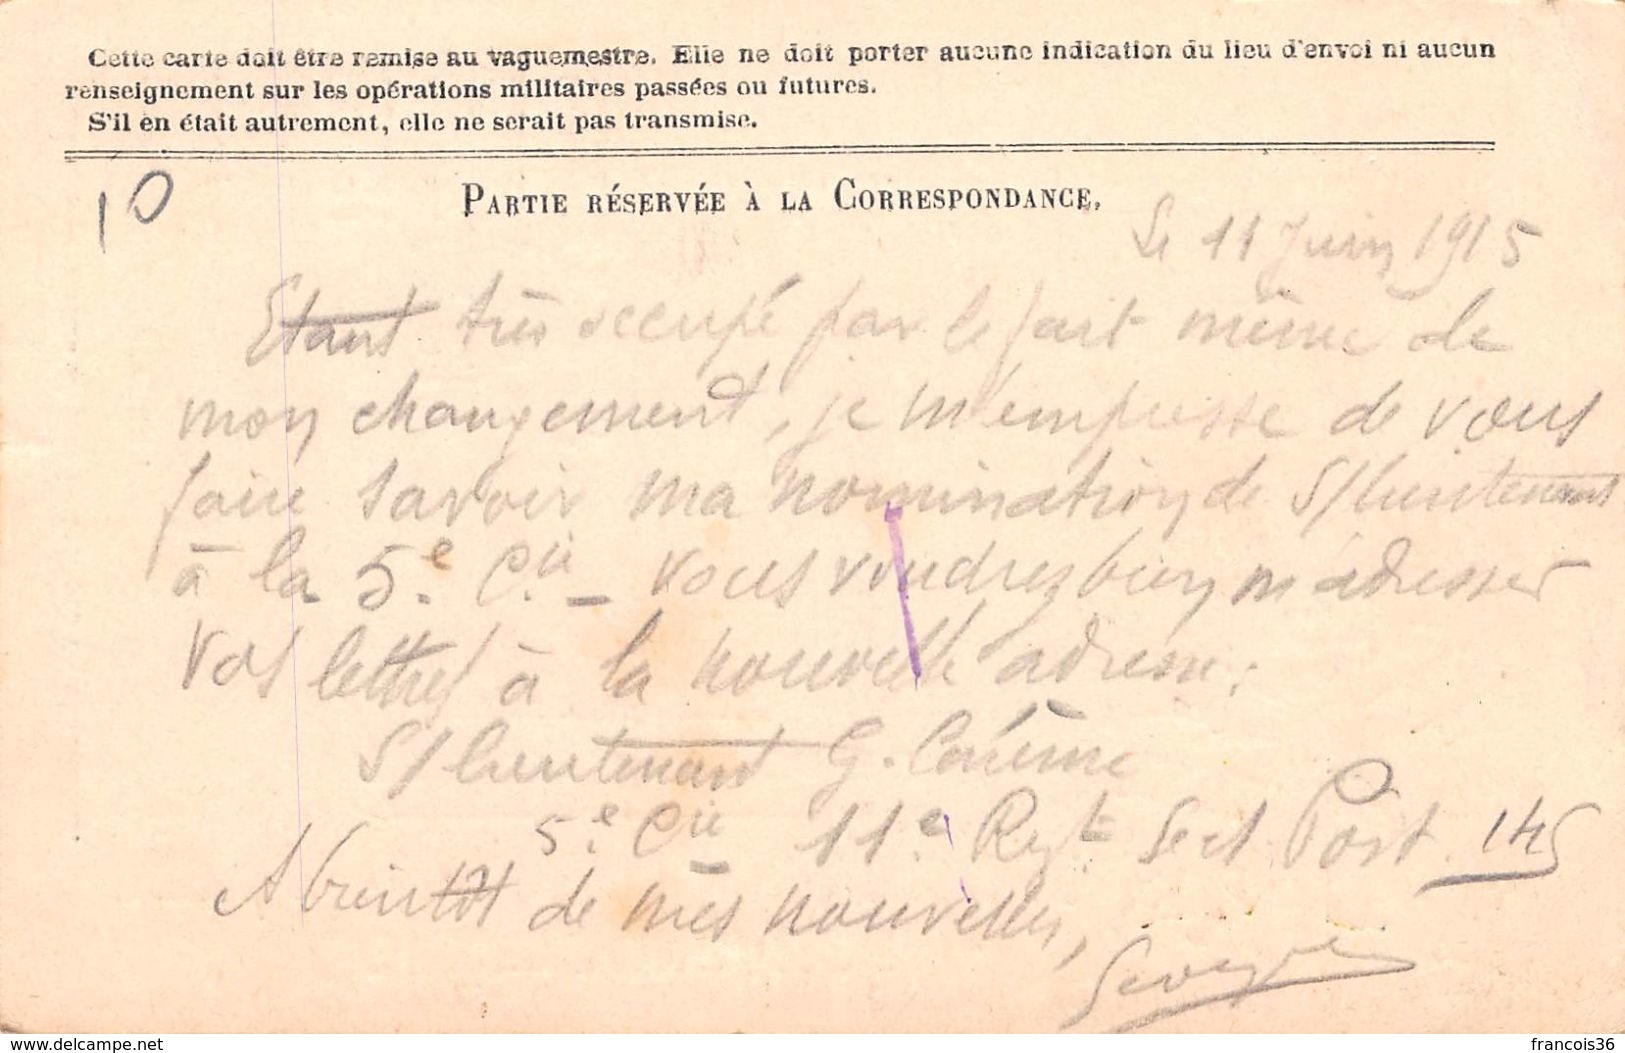 Cette carte doit être remise au vaguemestre. Elle ne doit porter aucune indication du lieu d'envoi ni aucun
renseignement sur les opérations militaires passées ou futures.
S'il en était autrement, elle ne serait pas transmise.
10
PARTIE RÉSERVÉE À LA CORRESPONDANCE.
Le 11 Juin 1915
Etant très occupé par le fait même de
mon changement, je m'empresse de vous
faire savoir ma nomination de S/lieutenant
à la 5e Cie - Vous voudrez bien m'adresser
vos lettres à la nouvelle adresse :
S/lieutenant G.
5e Cie 11e Regt Sect Post. 145
A bientôt de mes nouvelles,
Georges
delcampe.net
francois36